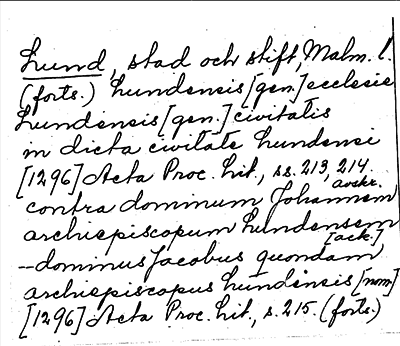 Lund, stad och stift, Malm. l.
(forts.) Lundensis [gen.] ecclesie
Lundensis [gen.] civitatis
in dicta civitate Lundensi
[1296] Acta Proc. Lit., ss. 213, 214
avskr.
contra dominum Johannem
archiepiscopum Lundensem
[ack.]
-- dominus Jacobus quondam
archiepiscopus Lundensis [nom]
[1296] Acta Proc. Lit., s. 215. (forts.)